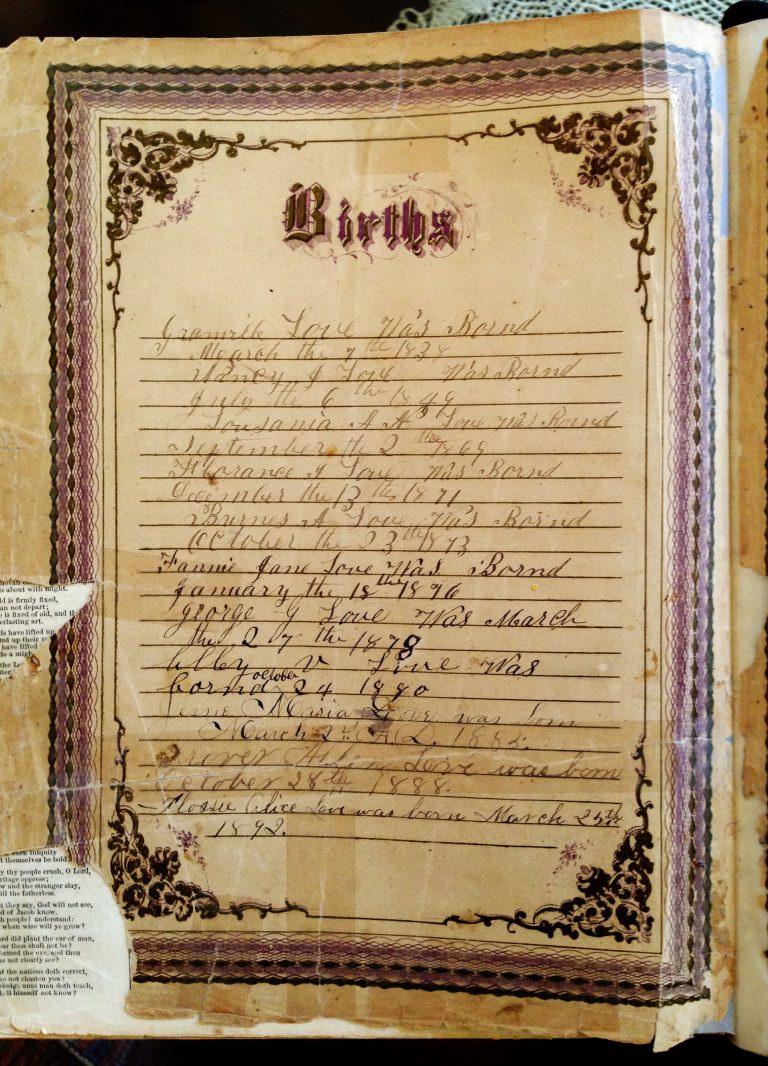 Births
Love Was Bornd
March the 7th 1838
Nancy J Love Was Bornd
July the 6th 1849
Lousania A A Love Was Bornd
September the 2the 1869
Florance J Love Was Bornd
December the 13th 1871
Burnes A Love Was Bornd
October the 23th 1873
Fannie Jane Love Was Bornd
January the 18the 1876
george g Love Was March
the 27the 1878
V Love Was
bornd october 24 1880
Maria Love was born
March A.D. 188
Grover Love was born
October 28th 1888.
Alice Love was born March 25th
1892.
s about with might.
ld is firmly fixed,
an not depart;
e is fixed of old, and th
erlasting art.
ds have lifted up
ted up their v
have lifted
de a migh
the Lo
work iniquity
t themselves be bold
y thy people crush, O Lord,
ritage oppress;
w and the stranger slay,
ill the fatherless.
t they say, God will not see,
d of Jacob know.
h people! understand:
when wise will ye grow?
ord did plant the ear of man,
ear then shall not he?
formed the eye, and then
he not clearly see?
t the nations doth correct,
he not chasten you?
unto man doth teach,
himself not know?